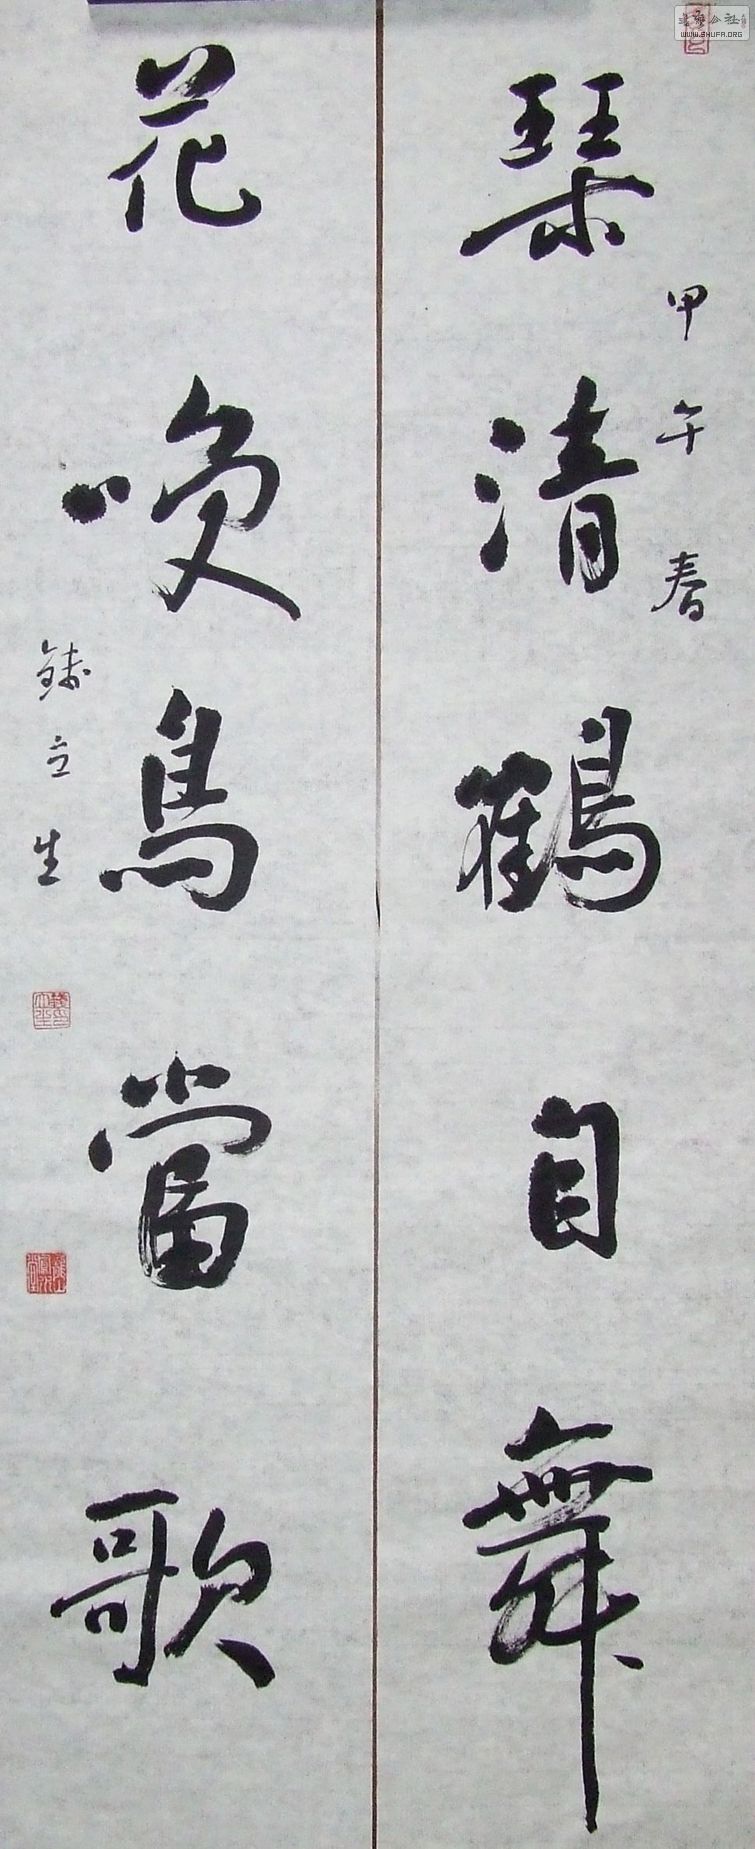 琴清鶴自舞
甲午春
花喚鳥當歌
錢立生
書艺公社
WWW.SHUFA.ORG